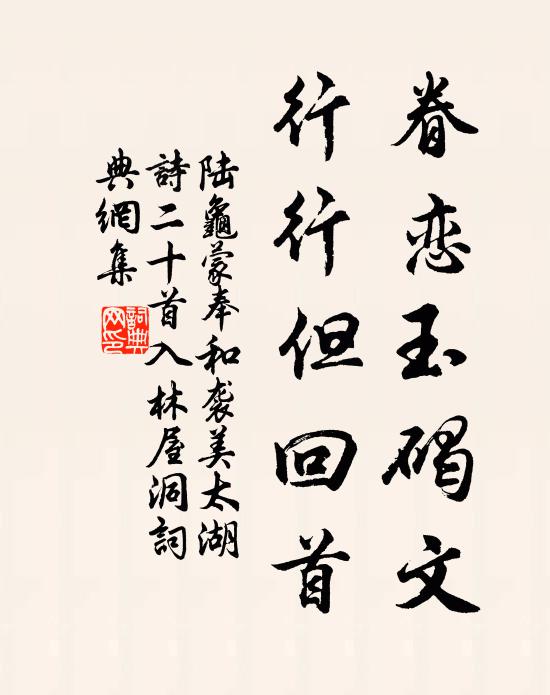 眷恋玉碣文
行行但回首
陆龜蒙奉和袭美太湖
詩二十首入林屋洞詞
典網集
詞典网印